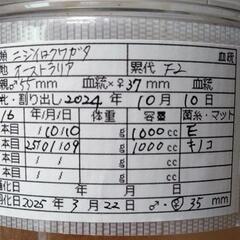 類 ニジイロクワガタ 血統
地 オーストラリア 累代 F2
親♂55mm 血統×♀37mm
孵化・割り出し2024年10月10日
16 年/月/日 体重 容量 菌糸・マット
本目 110110 g 1000cc E
本目 2501109 g 1000cc キノコ
本目 g cc
蛹化日 年 月 日
羽化日2025年3月22日♂・♀35mm